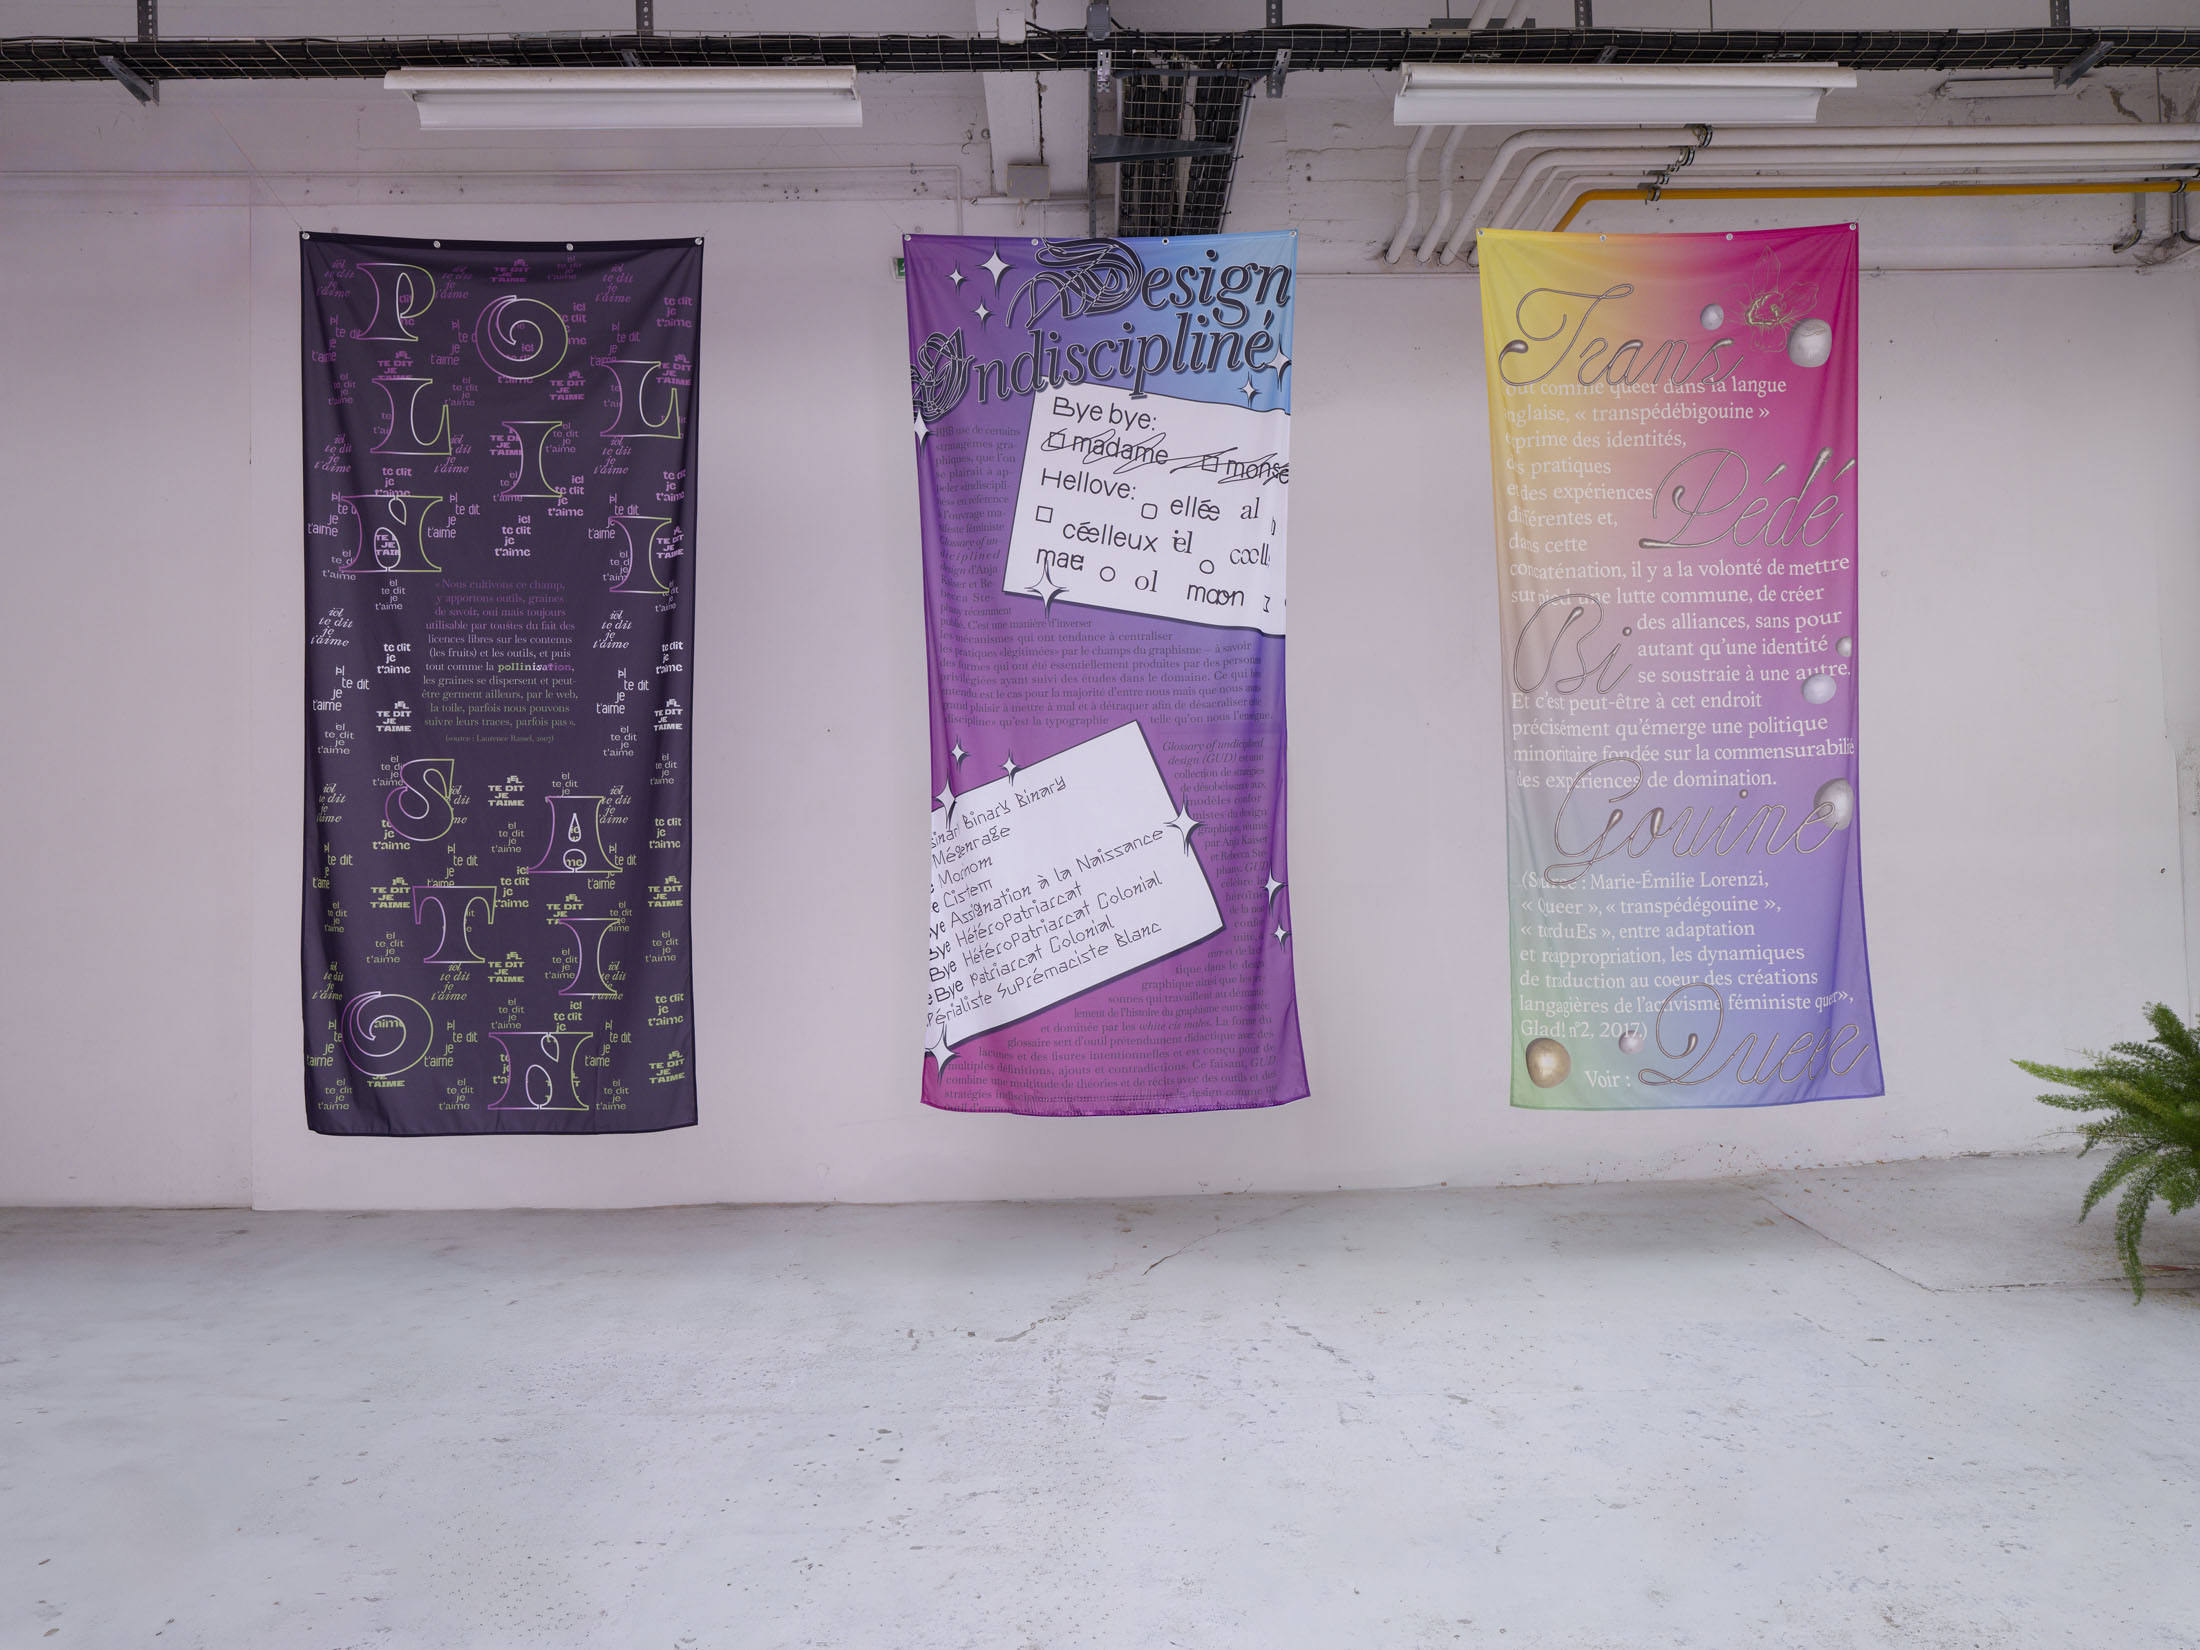 POLLINISATION
iel
te dit
je
t'aime
« Nous cultivons ce champ,
y apportons outils, graines
de savoir, oui mais toujours
utilisable par toustes du fait des
licences libres sur les contenus
(les fruits) et les outils, et puis
tout comme la pollinisation,
les graines se dispersent et peut-
être germent ailleurs, par le web,
la toile, parfois nous pouvons
suivre leurs traces, parfois pas ».
(source : Laurence Rassel, 2007)
Design
Indiscipliné
Bye bye:
madame monsie
Hellove: ellée al
céelleux iel
mae ol moon
BBB use de certains
stratagèmes gra-
phiques, que l'on
se plairait à ap-
peler «indiscipli-
nés» en référence
à l'ouvrage ma-
nifeste féministe
Glossary of un-
disciplined
design d'Anja
Kaiser et Re-
becca Ste-
phany récemment
publié. C'est une manière d'inverser
les mécanismes qui ont tendance à centraliser
les pratiques «légitimées» par le champs du graphisme – à savoir
des formes qui ont été essentiellement produites par des personn
privilégiées ayant suivi des études dans le domaine. Ce qui bi
entendu est le cas pour la majorité d'entre nous mais que nous
grand plaisir à mettre à mal et à détraquer afin de désacraliser
«discipline» qu'est la typographie telle qu'on nous l'enseigne.
Binary Binary
Mégenrage
Morinom
Cistem
Assignation à la Naissance
Bye HétéroPatriarcat
Bye HétéroPatriarcat Colonial
Bye Patriarcat Colonial
Périaliste SuPrémaciste Blanc
Glossary of undisciplined
design (GUD) est une
collection de stratégies
de désobéissance aux
modèles confor
mistes du design
graphique, réunis
par Anja Kaiser
et Rebecca Ste-
phany. GUD
célèbre les
tique dans le design
graphique ainsi que les per-
sonnes qui travaillent au démant
lement de l'histoire du graphisme euro-centrée
et dominée par les white cis males. La forme du
glossaire sert d'outil prétendument didactique avec des
lacunes et des fisures intentionnelles et est conçu pour de
multiples définitions, ajouts et contradictions. Ce faisant, GUD
combine une multitude de théories et de récits avec des outils et des
Trans
out comme queer dans la langue
nglaise, « transpédébigouine »
exprime des identités,
des pratiques
et des expériences
différentes et,
dans cette
Pédé
concaténation, il y a la volonté de mettre
sur pied une lutte commune, de créer
des alliances, sans pour
autant qu'une identité
se soustraie à une autre.
Bi
Et c'est peut-être à cet endroit
précisément qu'émerge une politique
minoritaire fondée sur la commensurabilité
des expériences de domination.
Gouine
(Source : Marie-Émilie Lorenzi,
« Queer », « transpédégouine »,
« torduEs », entre adaptation
et réappropriation, les dynamiques
de traduction au coeur des créations
langagières de l'activisme féministe queer»,
Glad! n°2, 2017.)
Voir : Queer